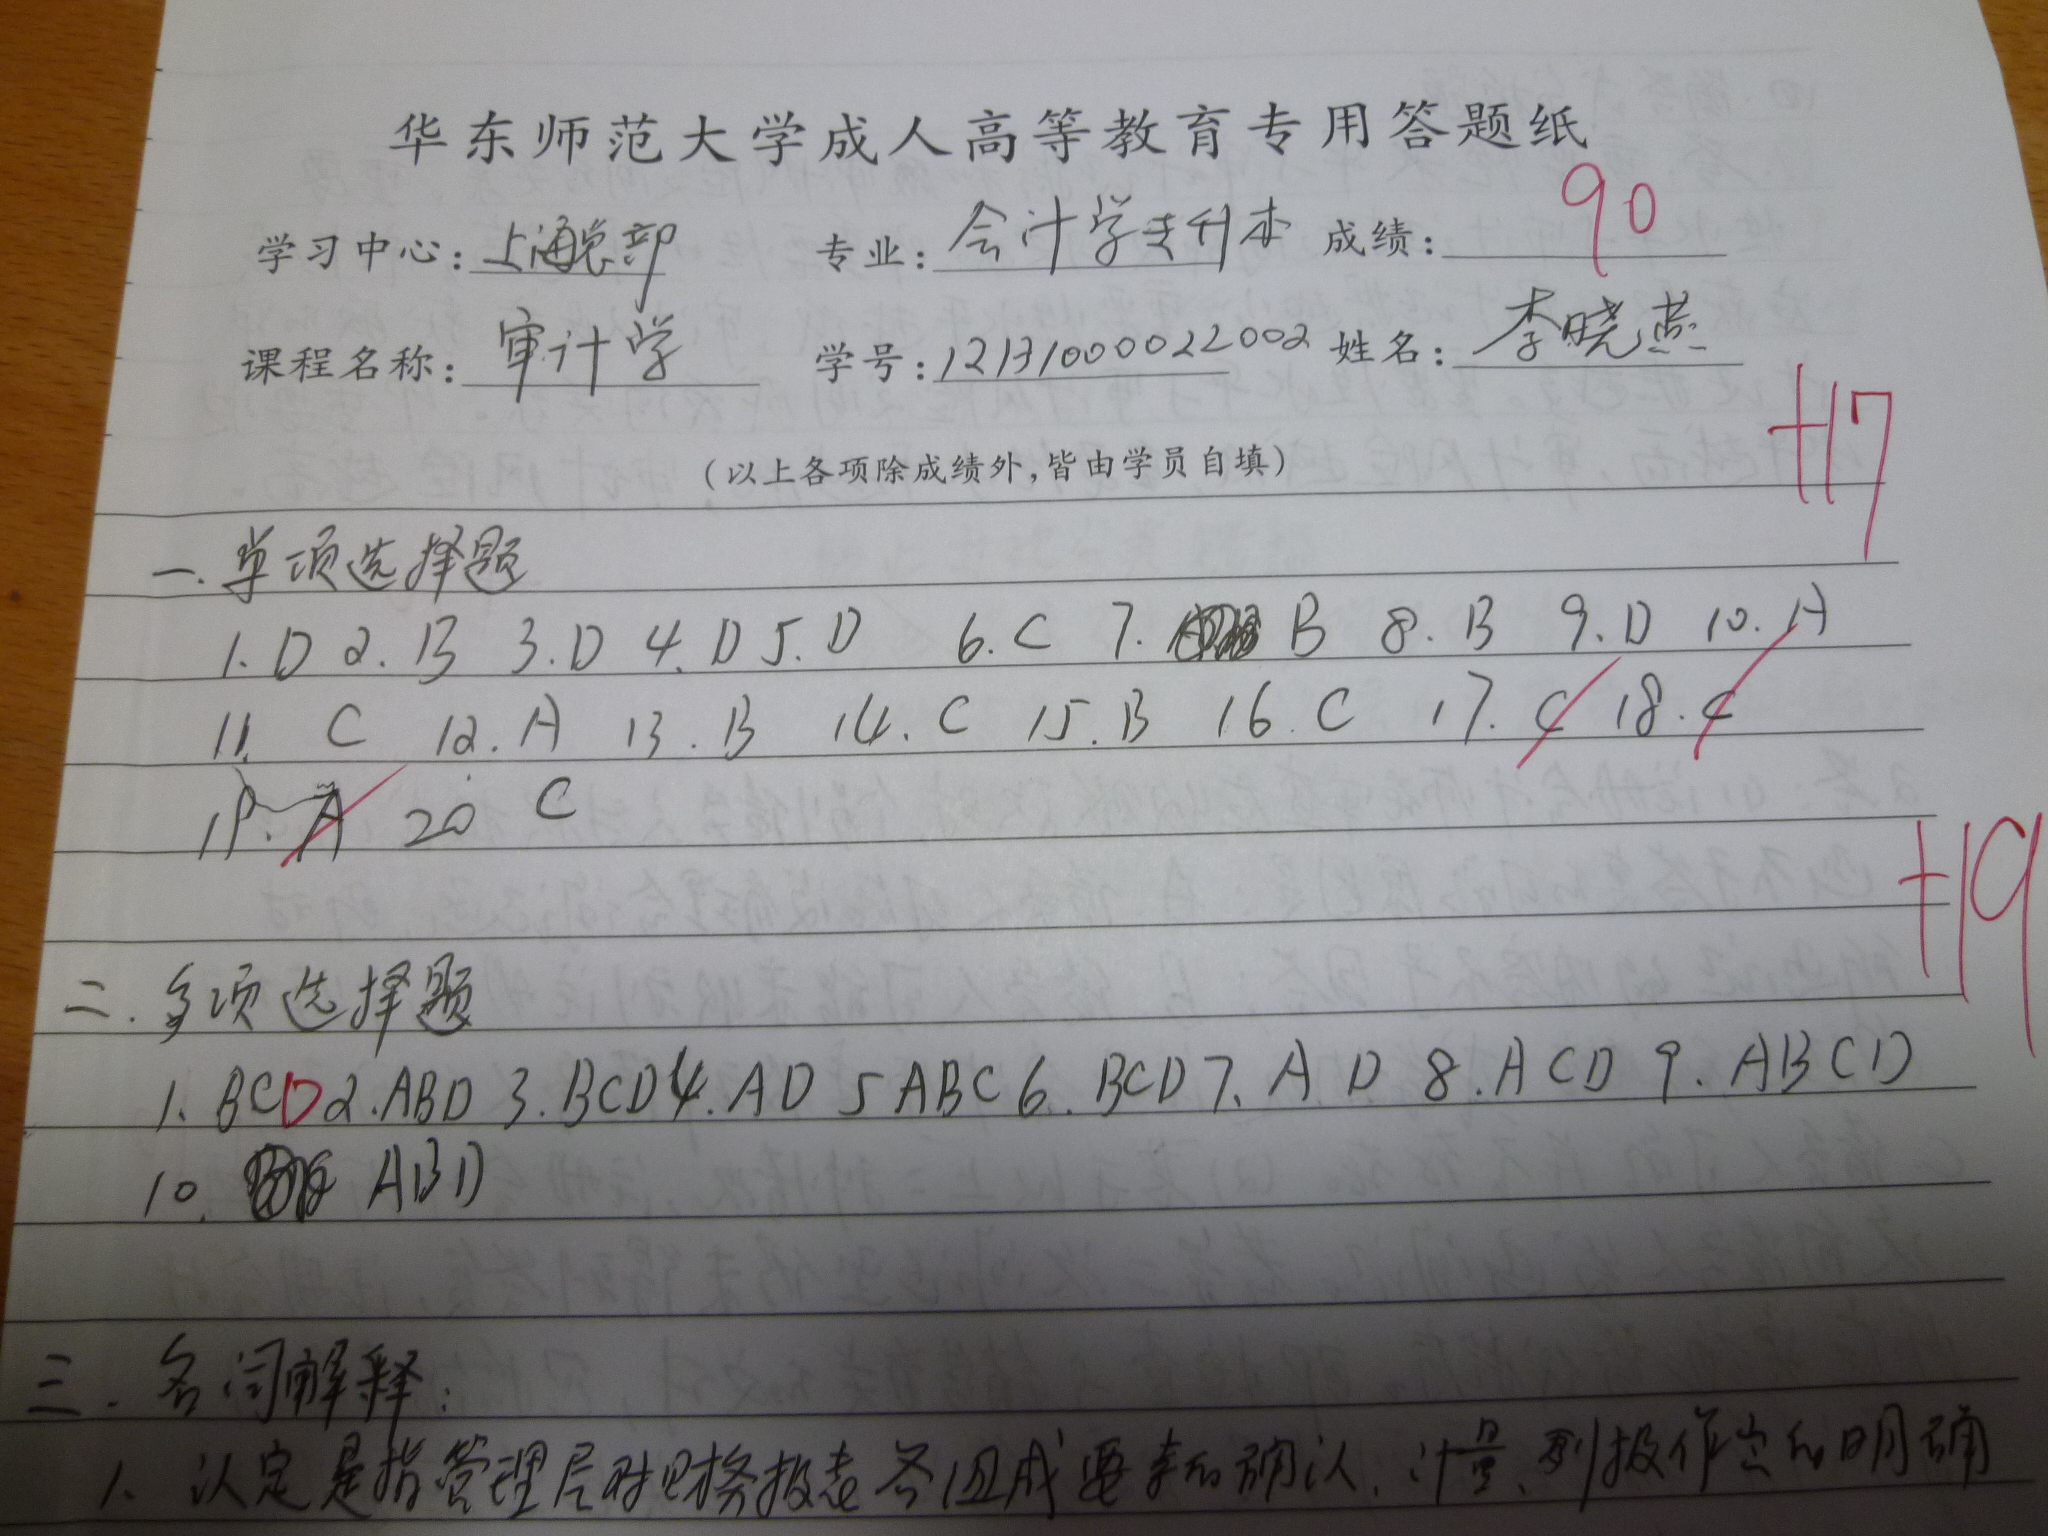 华东师范大学成人高等教育专用答题纸
学习中心: 上海总部 专业: 会计学专升本 成绩: 90
课程名称: 审计学 学号: 121310000022002 姓名: 李晓燕
(以上各项除成绩外,皆由学员自填)
+17
一. 单项选择题
1. D 2. B 3. D 4. D 5. D 6. C 7. B 8. B 9. D 10. A
11. C 12. A 13. B 14. C 15. B 16. C 17. C 18. C
19. A 20 C
+19
二. 多项选择题
1. BCD 2. ABD 3. BCD 4. AD 5 ABC 6. BCD 7. AD 8. ACD 9. ABCD
10. ABD
三. 名词解释:
1. 认定是指管理层对财务报表各组成要素的确认、计量、列报作出的明确